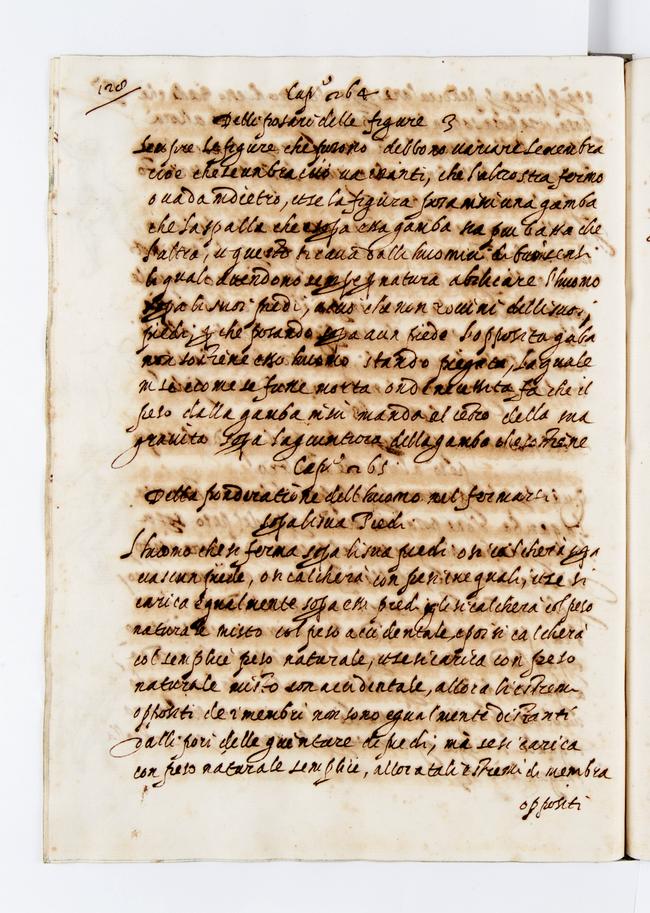 128
Cap.º 264
Delli posari delle figure 3
Sempre le figure che posono debbono variare le membra
cioè che se un braccio va avanti, che l'altro stia fermo
o vada indietro, et se la figura posa in su una gamba
che la spalla che è sopa essa gamba sia piu bassa che
l'altra, et questo si cava dalli huomini di buon sensi
li quali atendono sempre natura abilicare l'huomo
sopa li suoi piedi, acciò che non rovini delli suoi
piedi, che posando sopa a un piede l'opposita gaba
non sostiene esso huomo stando piegata, la quale
in se è come se fusse morta onde necessita fa che il
peso dalla gamba in su manda il cetro della sua
gravita sopa la giuntura della gamba che sostiene
Cap.º 265
Della ponderatione dell huomo nel fermarsi
sopa li sua Piedi
L'huomo che si ferma sopa li sua piedi o si calcherà sopa
ciascun piede, o si calcherà con pesi inequali, et se si
carica egualmente sopa essi piedi egli si calcherà col peso
naturale misto col peso accidentale, o poi si calcherà
col semplice peso naturale, et se si carica con peso
naturale misto con accidentale, allora li estremi
oppositi de i membri non sono egualmente distanti
dalli poli delle giunture di piedi, mà se si carica
con peso naturale semplice, allora tali estremi di membra
oppositi